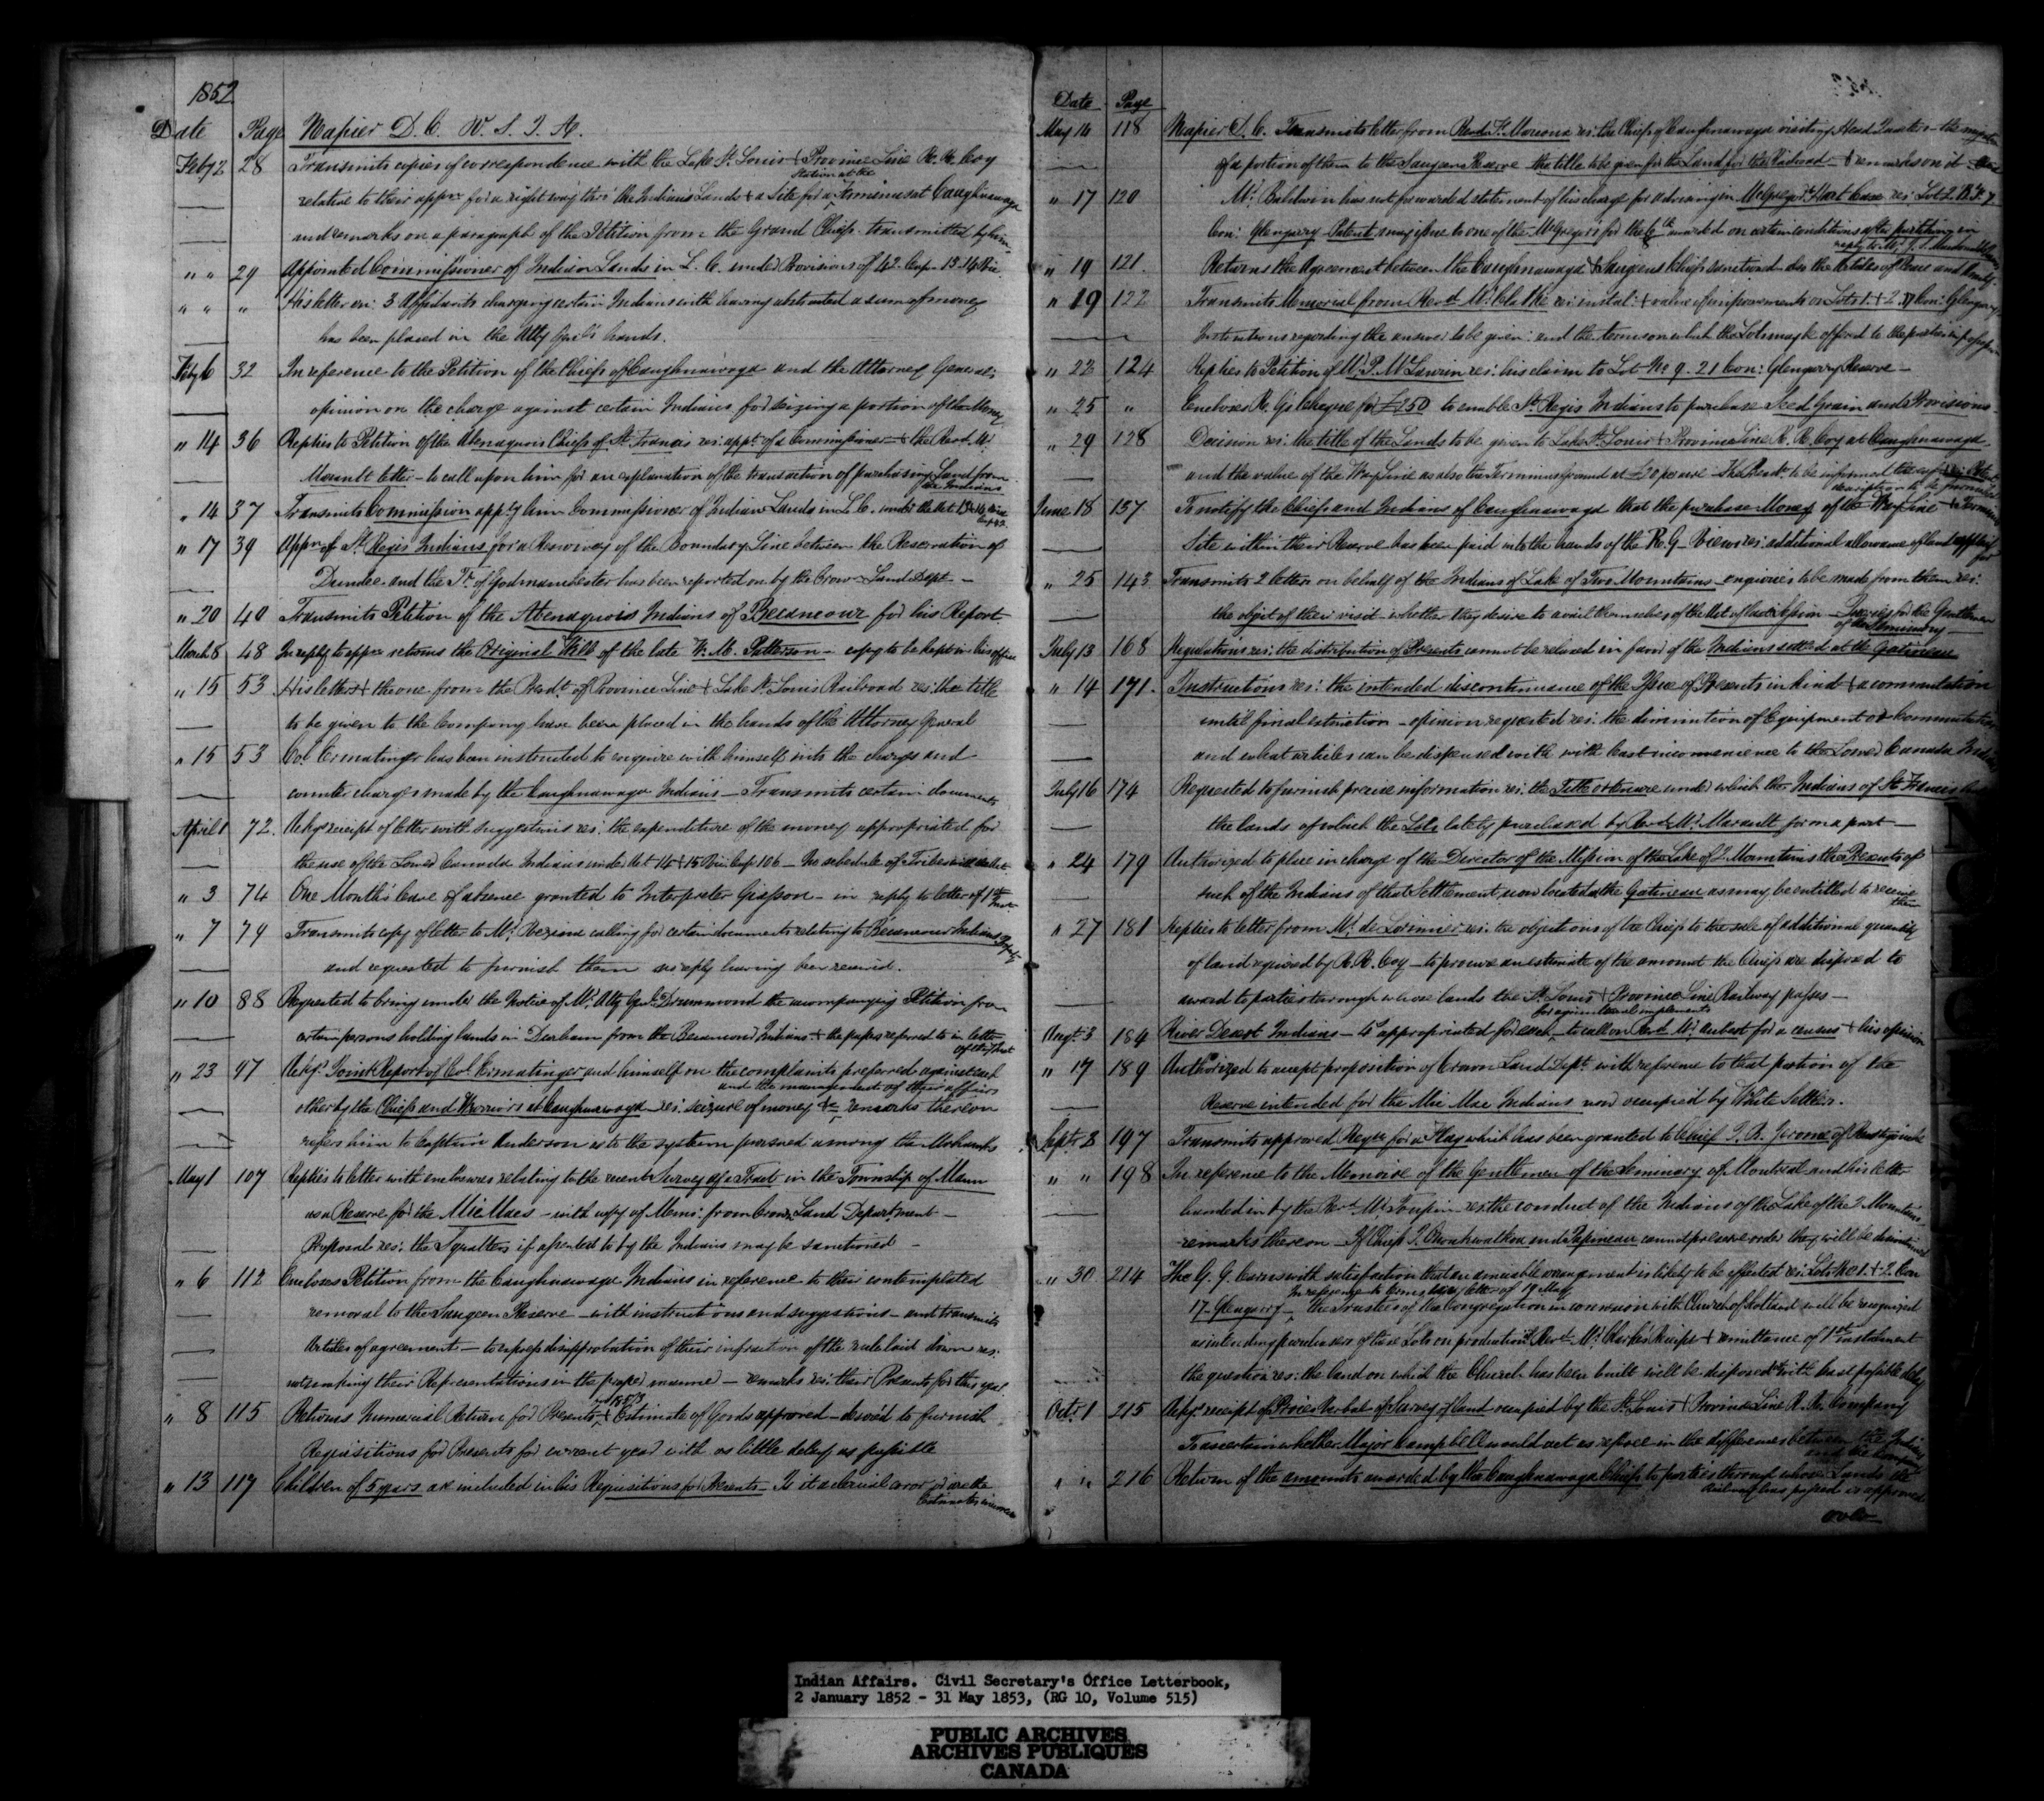 1852
Date Page Napier D. C. W. S. I. A.
Feby 2 28 Transmits copies of correspondence with the Lake St. Louis & Province Line R. R. Coy
Station at the
relative to their appn. for a right way thro' the Indians Lands & a Site for a Terminus at Caughnawaga
and remarks on a paragraph of the Petition from the Grand Chiefs transmitted by him
" " 29 Appointed Commissioner of Indian Lands in L. C. under Provisions of 42 Cap. 13.14 Vic.
" " " His letter en: 3 Affidavits charging certain Indians with having abstracted a sum of money
has been placed in the Atty Genl's hands.
Feby 6 32 In reference to the Petition of the Chiefs of Caughnawaga and the Attorney General's
opinion on the charge against certain Indians for seizing a portion of the Money
" 14 36 Replies to Petition of the Abenaquois Chiefs of St. Francis res: appt. of a Commissioner & the Revd. Mr.
Marault letter - to call upon him for an explanation of the transaction of purchasing Land from
the Indians
" 14 37 Transmits Commission apptg him Commissioner of Indian Lands in L. C. under the Act 13 & 14 Vic
Cap 42.
" 17 39 Appn. of St. Regis Indians for a Resurvey of the Boundary Line between the Reservation of
Dundee and the Tp. of Godmanchester has been reported on by the Crown Land Dept. -
" 20 40 Transmits Petition of the Abenaquois Indians of Becancour for his Report
March 8 48 In reply to appn. returns the Original Will of the late W. M. Patterson - copy to be kept in his office
" 15 53 His letter & the one from the Presdt. of Province Line & Lake St. Louis Railroad res: the title
to be given to the Company have been placed in the hands of the Attorney General
" 15 53 Col. Ermatinger has been instructed to enquire with himself into the charges and
counter charges made by the Caughnawaga Indians - Transmits certain documents
April 1 72. Ackgs. receipt of letter with suggestions res: the expenditure of the money appropriated for
the use of the Lower Canada Indians under Act 14 & 15 Vic: Cap 106 - No schedule of Tribes
" 3 74 One Month's leave of absence granted to Interpreter Giasson - in reply to letter of 1st
Inst
" 7 79 Transmits copy of letter to Mr. calling for certain documents relating to Becancour Indians
and requested to furnish them no reply having been received.
" 10 88 Requested to bring under the Notice of Mr. Atty Genl. Drummond the accompanying Petition from
certain persons holding lands in Durham from the Becancour Indians & the papers referred to in letter
of the Inst
" 23 97 Ackgs. Joint Report of Col. Ermatinger and himself on the complaints preferred against each
and the management of their affairs
other by the Chiefs and Warriors at Caughnawaga res: seizure of money &c remarks thereon
refers him to Captain Anderson as to the system pursued among the Mohawks
May 1 107 Replies to letter with enclosures relating to the recent Survey of a Tract in the Township of Mann
as a Reserve for the Mic Macs - with copy of Memo: from Crown Land Department -
Proposal res: the Squatters if assented to by the Indians may be sanctioned -
" 6 112 Encloses Petition from the Caughnawaga Indians in reference to their contemplated
removal to the Saugeen Reserve - with instructions and suggestions - and transmits
Articles of agreement - to express disapprobation of their infraction of the rule laid down res:
not making their Representations in the proper manner - remarks res: their Presents for this year
for 1853
" 8 115 Returns Numerical Return for Presents & Estimate of Goods approved - desired to furnish
Requisitions for Presents for current year with as little delay as possible
" 13 117 Children of 5 years are included in his Requisitions for Presents - Is it a clerical error or are the
Estimates incorrect
Date Page
May 14 118 Napier D. C. Transmits letter from Revd. Fr. Marcoux res: the Chiefs of Caughnawaga visiting Head Quarters - the migration
of a portion of them to the Saugeen Reserve - the title to be given for the Land for the Railroad - & remarks on it
" 17 120 Mr. Baldwin has not forwarded statement of his charge for advising in McGregor & Hart Case res: Lot 2
Con: Glengarry Patent may issue to one of the McGregors for the on certain conditions after
" 19 121. Returns the Agreement between the Caughnawaga & Saugeen Chiefs sanctioned also the Articles of Peace and Amity.
" 19 122 Transmits Memorial from Revd. Mr. Clarke res: instal: & value of improvements on Lots 1. & 2. 17 Con: Glengarry
Instructions regarding the answer to be given and the terms on which the Lots might offered to the parties in possession
" 22 124 Replies to Petition of Mr. P. McLaurin res: his claim to Lot No. 9. 21 Con: Glengarry Reserve -
" 25 " Encloses R. G's Cheque for £250 to enable St. Regis Indians to purchase Seed Grain and Provisions
" 29 128 Decision res: the title of the Lands to be given to Lake St. Louis & Province Line R. R. Coy at Caughnawaga
and the value of the Way Line as also the Terminus ground at £20 per acre - The Presdt. to be informed thereof
description to be furnished
June 18 137 To notify the Chiefs and Indians of Caughnawaga that the purchase Money of the Way Line & Terminus
Site within their Reserve has been paid into the hands of the R. G - Views res: additional allowance of land applied
for
" 25 143 Transmits 2 letters on behalf of the Indians of Lake of Two Mountains - enquiries to be made from them res:
the object of their visit - whether they desire to avail themselves of the Act of Gratification - Queries for the Gentlemen
of the Seminary -
July 13 168 Regulations res: the distribution of Presents cannot be relaxed in favor of the Indians settled at the Gatineau
" 14 171. Instructions res: the intended discontinuance of the Issue of Presents in kind & a commutation
until final extinction - opinion requested res: the diminution of Equipment or Commutation
and what articles can be dispensed with with least inconvenience to the Lower Canada Indians
July 16 174 Requested to furnish precise information res: the Title or tenure under which the Indians of St. Francis
the lands of which the Lots lately purchased by Revd. Mr. Marault form a part -
" 24 179 Authorized to place in charge of the Director of the Mission of the Lake of 2 Mountains the Presents of
such of the Indians of that Settlement now located at the Gatineau as may be entitled to receive
them
" 27 181 Replies to letter from Mr. de Lorimier res: the objections of the Chiefs to the sale of additional quantity
of land required by R. R. Coy - to procure an estimate of the amount the Chiefs are disposed to
award to parties through whose lands the St. Louis & Province Line Railway passes -
for agricultural implements
Augt. 3 184 River Desert Indians - appropriated for each - to call on Revd. Mr. Aubert for a census & his opinion
" 17 189 Authorized to accept proposition of Crown Land Dept. with reference to that portion of the
Reserve intended for the Mic Mac Indians now occupied by White Settlers.
Septr. 8 197 Transmits approved Requn. for a Flag which has been granted to Chief J. B. Jerome of Restigouche
" " 198 In reference to the Memoire of the Gentlemen of the Seminary of Montreal and his letter
handed in by the Revd. Mr. Toupin res: the conduct of the Indians of the Lake of the 2 Mountains
remarks thereon - If Chiefs and Papineau cannot preserve order they will be discontinued
" 30 214 The G. G. learns with satisfaction that an amicable arrangement is likely to be effected res: Lots No. 1. & 2. Con
In reference to letter of 19 May
17 Glengarry - the Trustees of the Congregation in connexion with Church of Scotland will be recognized
as intending purchasers of these Lots on production of Revd. Mr. Clarke's Receipt & remittance of 1st instalment
the question res: the land on which the Church has been built will be disposed of with least possible delay
Octr. 1 215 Ackgs. receipt of Proces Verbal of Survey of land occupied by the St. Louis & Province Line R. R. Company
To ascertain whether Major Campbell would act as referee in the differences between the Indians
and the Company
" " 216 Return of the amounts awarded by the Caughnawaga Chiefs to parties through whose Lands the
Railway has passed is approved
over
Indian Affairs. Civil Secretary's Office Letterbook,
2 January 1852 - 31 May 1853, (RG 10, Volume 515)
PUBLIC ARCHIVES
ARCHIVES PUBLIQUES
CANADA